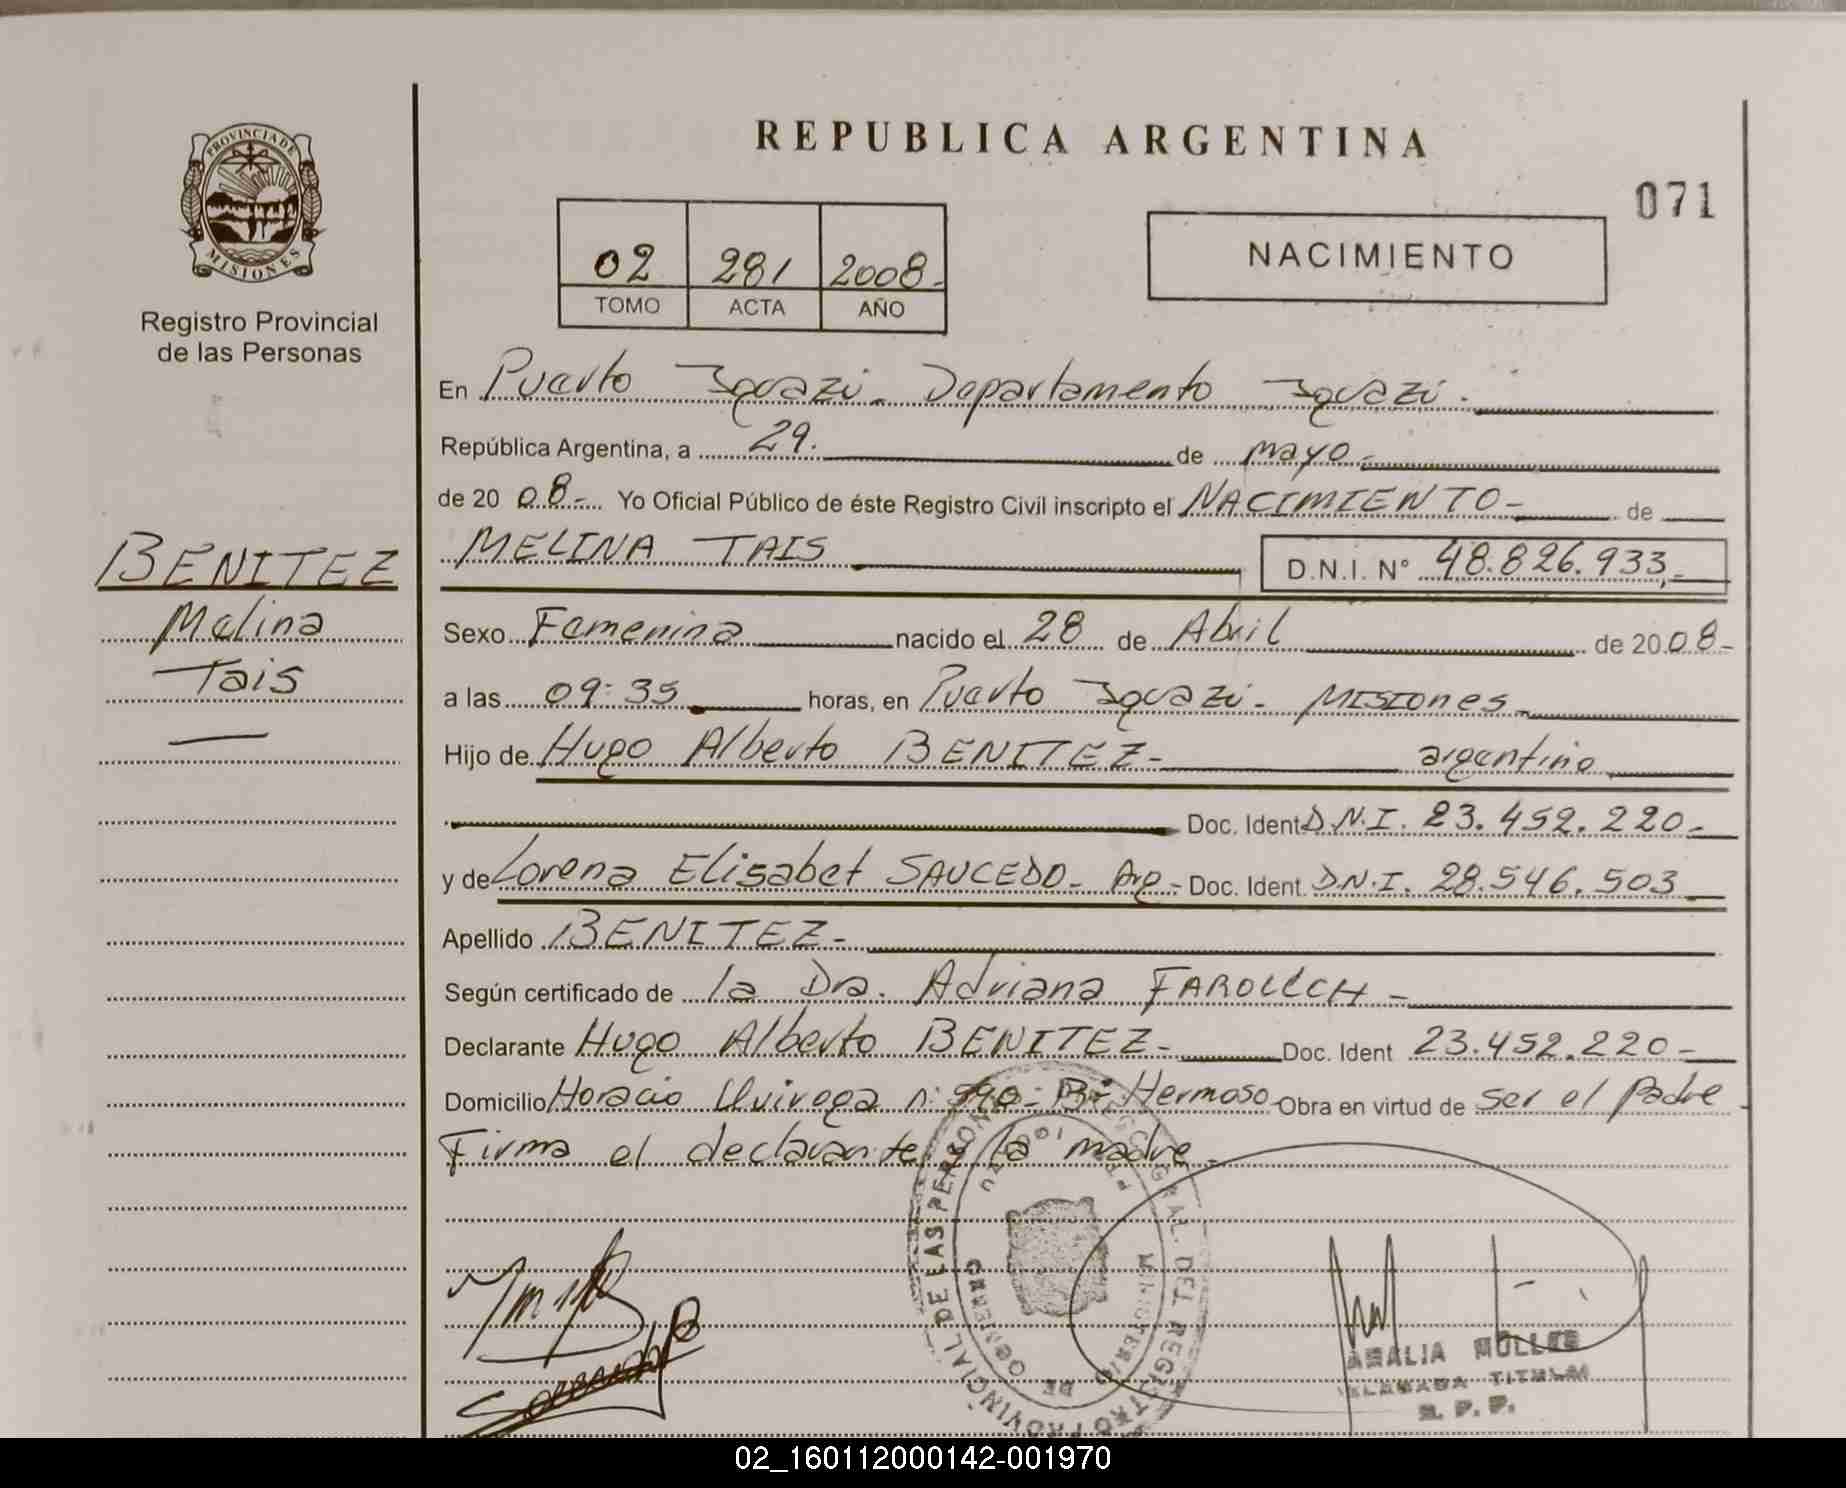 PROVINCIA DE
MISIONES
Registro Provincial
de las Personas
BENITEZ
Melina
Tais
REPUBLICA ARGENTINA
071
NACIMIENTO
02 281 2008-
TOMO ACTA AÑO
En Puerto Iguazú - Departamento Iguazú.
República Argentina, a 29. de mayo-
de 2008- Yo Oficial Público de éste Registro Civil inscripto el NACIMIENTO- de
MELINA TAIS D.N.I. N° 48.826.933,-
Sexo Femenina nacido el 28 de Abril de 2008-
a las 09:35 horas, en Puerto Iguazú - MISIONES-
Hijo de Hugo Alberto BENITEZ- argentino
Doc. Ident D.N.I. 23.452.220-
y de Lorena Elisabet SAUCEDO- Arg- Doc. Ident. D.N.I. 28.546.503
Apellido BENITEZ-
Según certificado de la Dra. Adriana
Declarante Hugo Alberto BENITEZ- Doc. Ident 23.452.220-
Domicilio Horacio Quiroga n: Hermoso- Obra en virtud de ser el padre
Firma el declarante y la madre-
AMALIA
TITULAR
R. P. P.
02_160112000142-001970